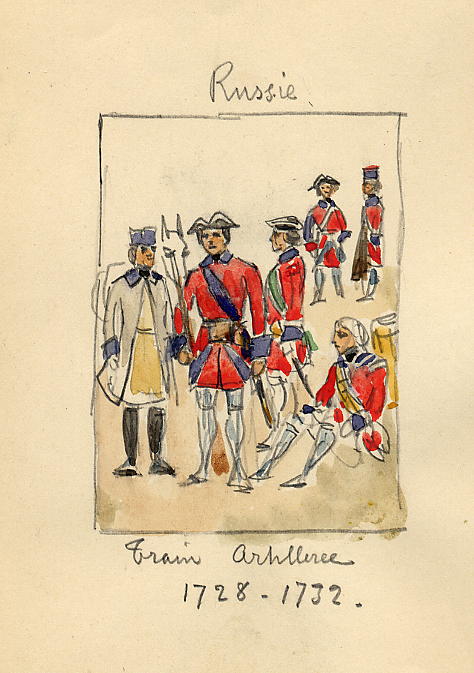 Russie
Train Artilleree
1728-1732.